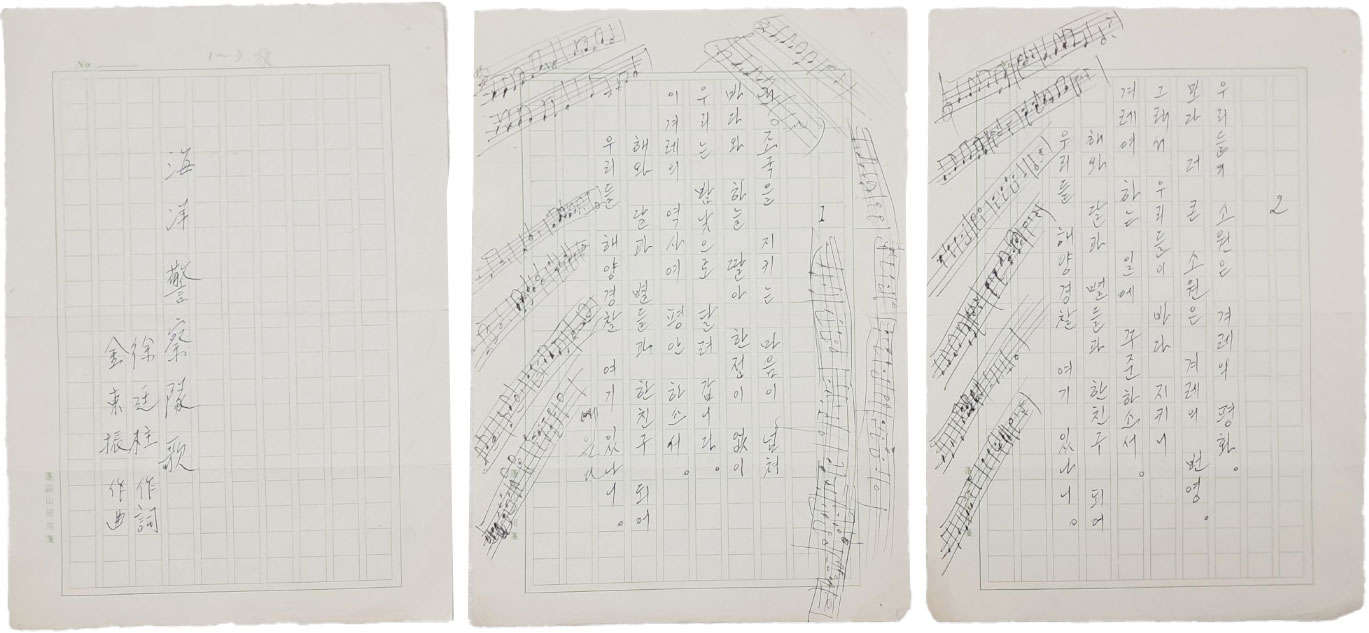 No.
海洋警察隊歌
徐廷柱 作詞
金東振 作曲
1
조국은 지키는 마음이 넘쳐
바다와 하늘 딸아 한점이 없이
우리는 밤낮으로 달려 갑니다。
이 겨레의 역사여 평안 하소서。
해와 달과 별들과 한친구 되어
우리들 해양경찰 여기 있나니。
2
우리들의 소원은 겨레의 평화。
보다 더 큰 소원은 겨레의 번영。
그래서 우리들이 바다 지키니
겨레여 하는 일에 꾸준하소서。
해와 달과 별들과 한친구 되어
우리들 해양경찰 여기 있나니。